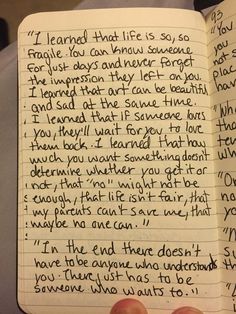 "I learned that life is so, so
fragile. You can know someone
for just days and never forget
the impression they left on you.
I learned that art can be beautiful
and sad at the same time.
I learned that if someone loves
you, they'll wait for you to love
them back. I learned that how
much you want something doesn't
determine whether you get it or
not, that "no" might not be
enough, that life isn't fair, that
my parents can't save me, that
maybe no one can."
"In the end there doesn't
have to be anyone who understands
you. There just has to be
someone who wants to."
93
"You
you
not
plac
have